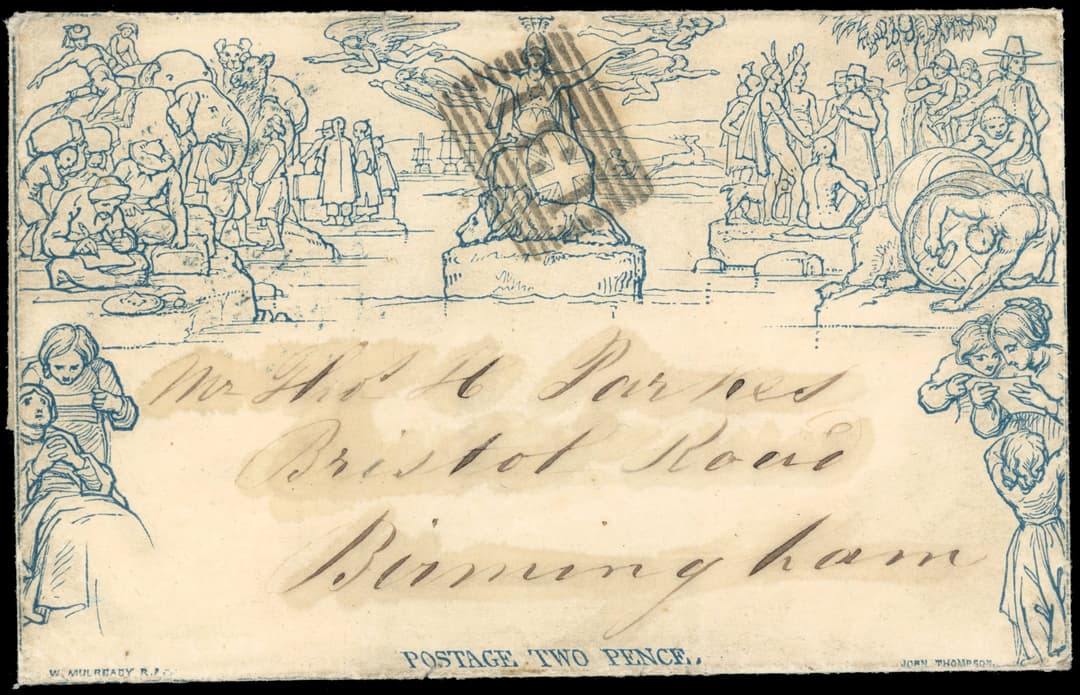 Mr Thos H Parkes
Bristol Road
Birmingham
POSTAGE TWO PENCE.
W. MULREADY R.A.
JOHN THOMPSON.